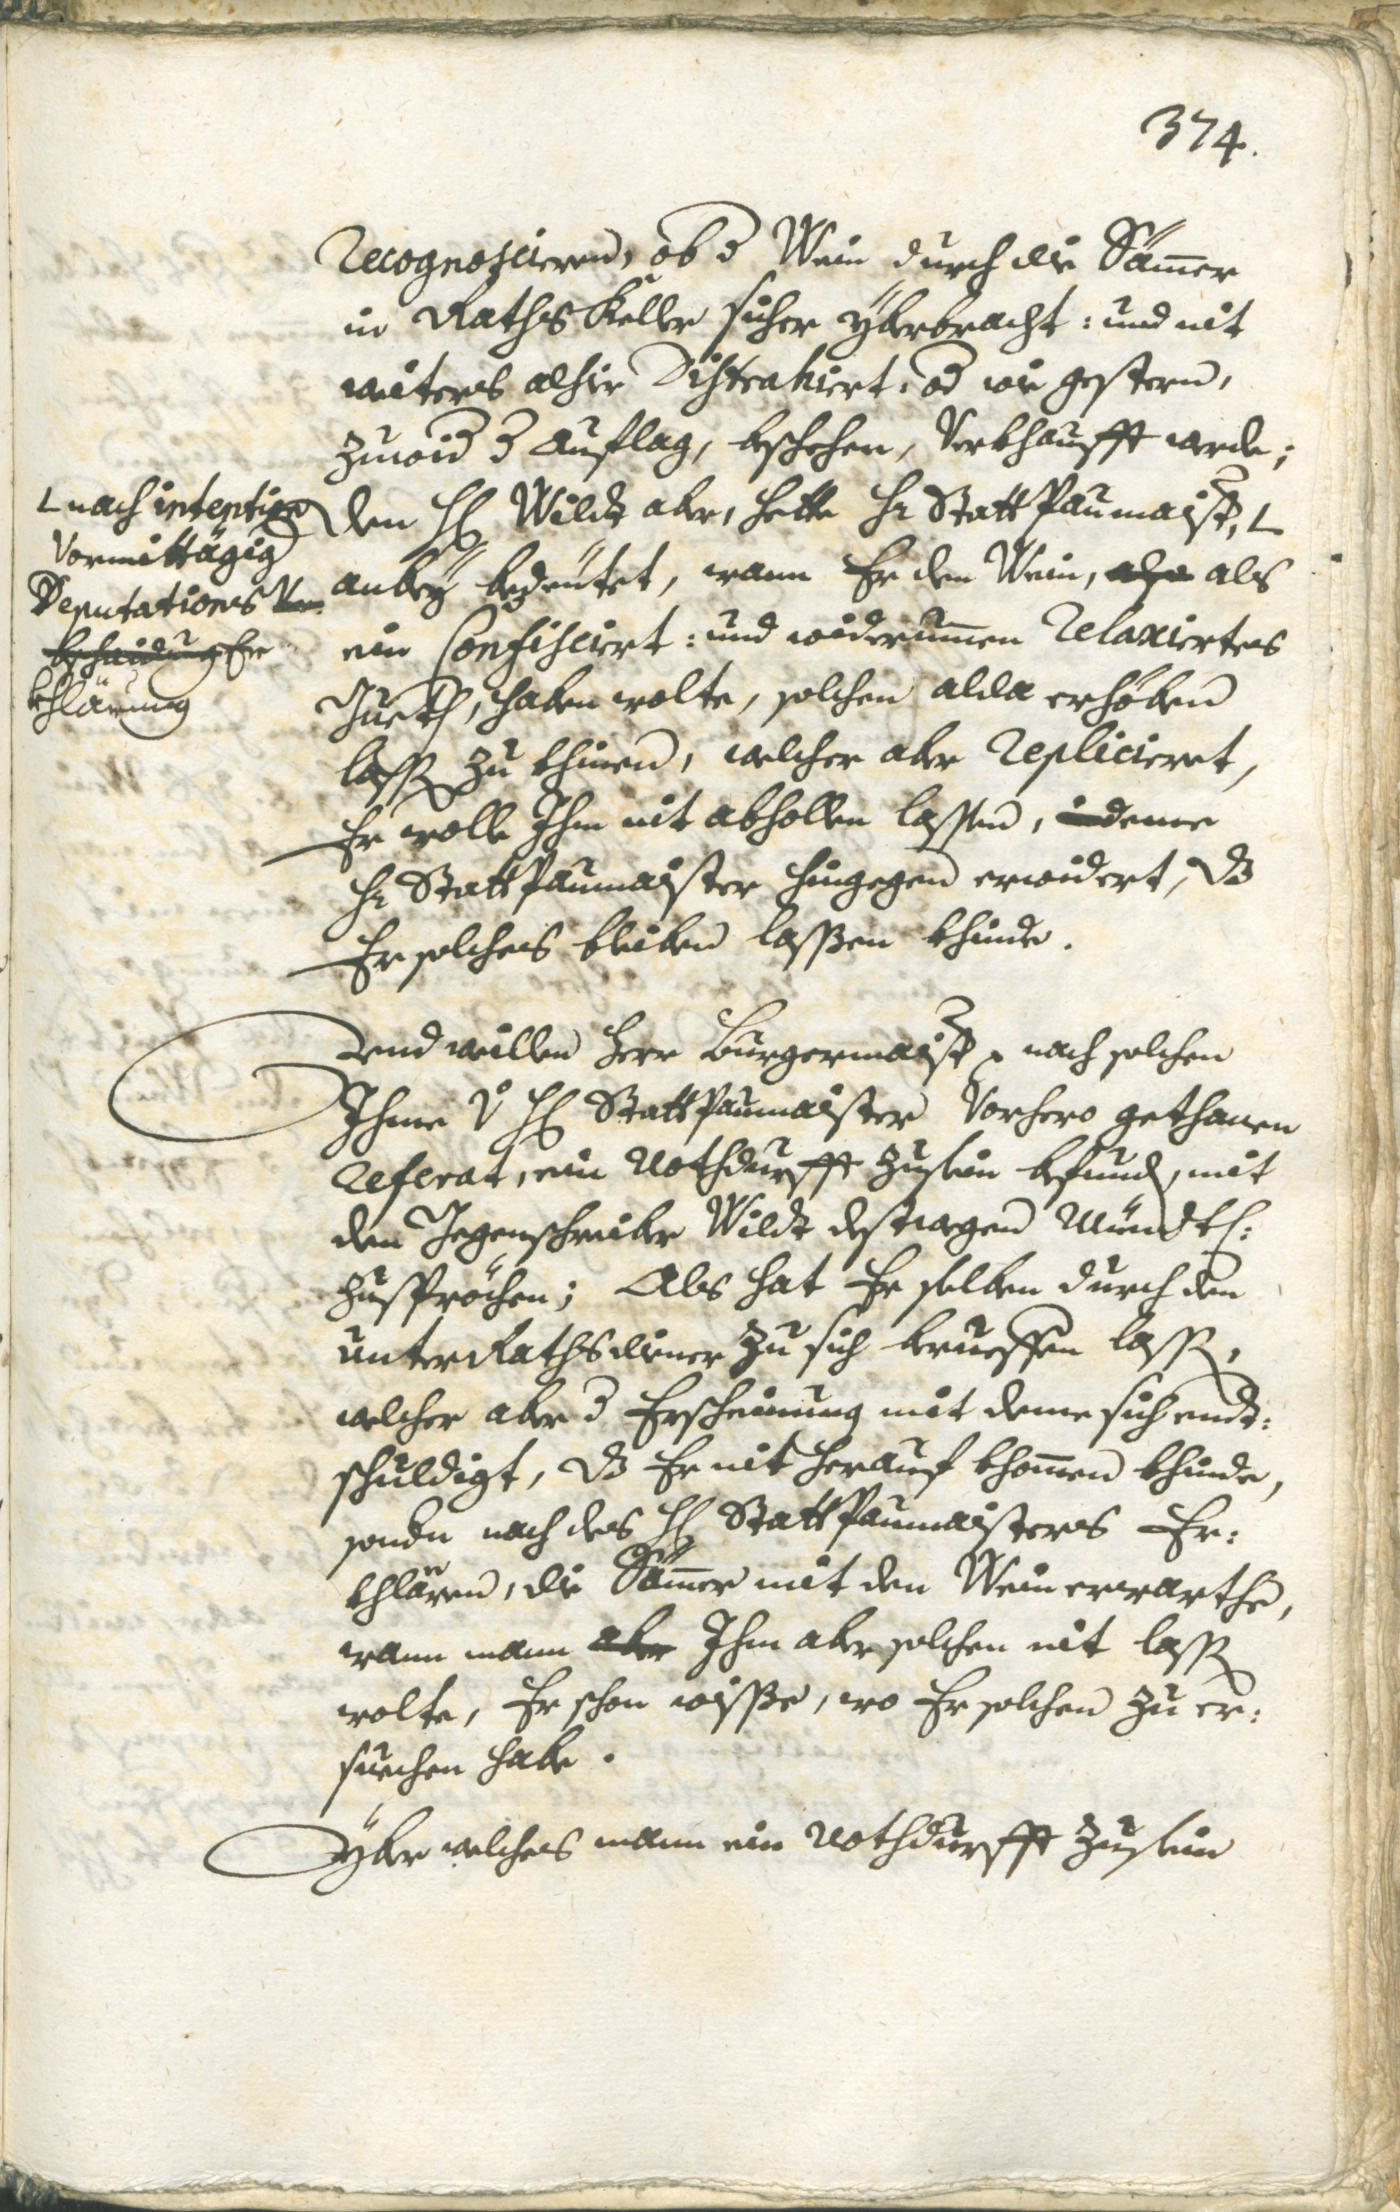 374.
Recognoscieren, ob d Wein durch die Sämer
in Raths Keller sicher yberbracht: und nit
weiters alhie Distrahiert, od wie gestern,
zuwid d Auflag, beschehen, Verkhaufft werde;
den H: Wildt aber, hette Hr StattPaumaister, L
L nach intention
Vormittägig
Deputations Ver
bschaidung Er
khlärung
anbey bedeütet, wann Er den Wein, also als
ein Confisciert: und widerummen Relaxiertes
Gueth, haben wolte, solchen alda erhöben
lassen zu khinen, welcher aber Replicieret,
Er wolle Ihm nit abhollen lassen, deme
Hr StattPaumaister hingegen erwidert, dz
Er solches bleiben lassen khinde.
Und weillen Herr Burgermaister, nach solchen
Ihme v H: StattPaumaister Vorhero gethanen
Referat, ein Nothdurfft zu sein befunden, mit
den Gegenschreiber Wildt destwegen Mündtl:
zusprechen; Als hat Er selben durch den
unter Rathsdiener zu sich berueffen lassen,
welcher aber d Erscheinung mit deme sich endt:
schuldigt, dz Er nit herauf khommen khinde,
sondn nach des H: StattPaumaisters Er:
khlären, die Sämer mit den Wein erwarthe,
wann mann aber Ihm aber solchen nit lassen
wolte, Er schon wisse, wo Er solchen zu er:
suechen habe.
Yber welches mann ein Nothdurfft zu sein